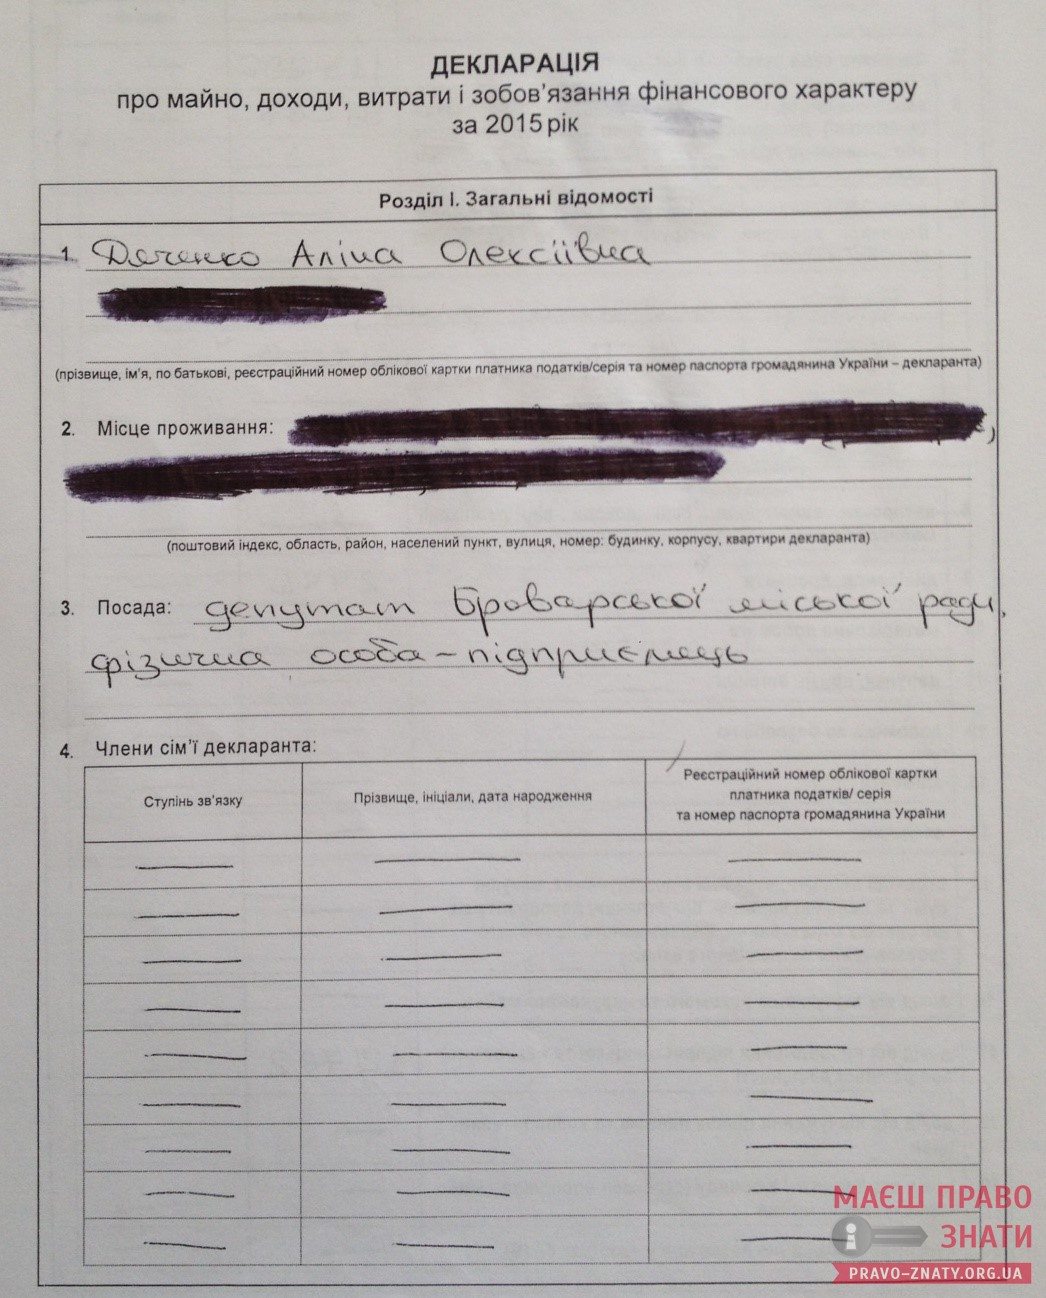 ДЕКЛАРАЦІЯ
про майно, доходи, витрати і зобов'язання фінансового характеру
за 2015 рік
Розділ І. Загальні відомості
1. Дяченко Аліна Олексіївна
(прізвище, ім'я, по батькові, реєстраційний номер облікової картки платника податків/серія та номер паспорта громадянина України – декларанта)
2. Місце проживання:
(поштовий індекс, область, район, населений пункт, вулиця, номер: будинку, корпусу, квартири декларанта)
3. Посада: депутат Броварської міської ради,
фізична особа – підприємець
4. Члени сім'ї декларанта:
Ступінь зв'язку
Прізвище, ініціали, дата народження
Реєстраційний номер облікової картки
платника податків/ серія
та номер паспорта громадянина України
МАЄШ ПРАВО
ЗНАТИ
PRAVO-ZNATY.ORG.UA